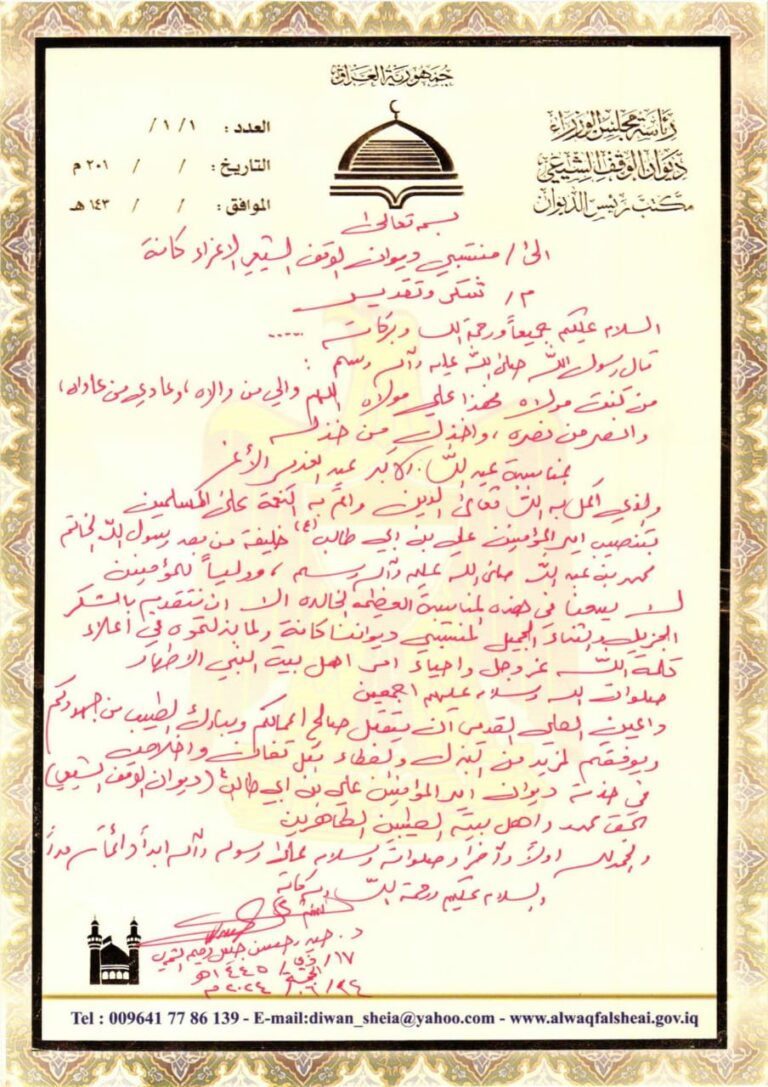 جمهورية العراق
رئاسة مجلس الوزراء
ديوان الوقف الشيعي
مكتب رئيس الديوان
العدد : ١ / ١ /
التاريخ : / / ٢٠١ م
الموافق : / / ١٤٣ هـ
بسمه تعالى
الى / منتسبي ديوان الوقف الشيعي الاعزاء كافة
م / شكر وتقدير
السلام عليكم جميعاً ورحمة الله وبركاته .....
قال رسول الله صلى الله عليه وآله وسلم :
من كنت مولاه فهذا علي مولاه اللهم والي من والاه ، وعادي من عاداه ،
وانصر من نصره ، واخذل من خذله
بمناسبة عيد الله الاكبر عيد الغدير الأغر
والذي اكمل به الله تعالى الدين واتم به النعمة على المسلمين
بتنصيب امير المؤمنين علي بن ابي طالب (ع) خليفة من بعد رسول الله الخاتم
محمد بن عبد الله صلى الله عليه وآله وسلم ، وولياً للمؤمنين
لا يسعنا في هذه المناسبة العظيمة الخالده الا ان نتقدم بالشكر
الجزيل والثناء الجميل لمنتسبي ديواننا كافة ولما بذلتموه في أعلاء
كلمة الله عز وجل واحياء امر اهل بيت النبي الاطهار
صلوات الله وسلامه عليهم اجمعين
داعين العلي القدير أن يتقبل صالح اعمالكم ويبارك الطيب من جهودكم
ويوفقكم لمزيد من البذل والعطاء بكل تفان واخلاص
في خدمة ديوان امير المؤمنين علي بن ابي طالب (ديوان الوقف الشيعي)
بحق محمد واهل بيته الطيبين الطاهرين
والحمد لله اولاً وآخراً وصلواته وسلامه على رسوله وآله ابداً دائماً
والسلام عليكم ورحمة الله وبركاته
د. حيدر حسن
١٧ / / ١٤٤٥ هـ
٢٠٢٤ م
Tel : 009641 77 86 139 - E-mail:diwan_sheia@yahoo.com - www.alwaqfalsheai.gov.iq